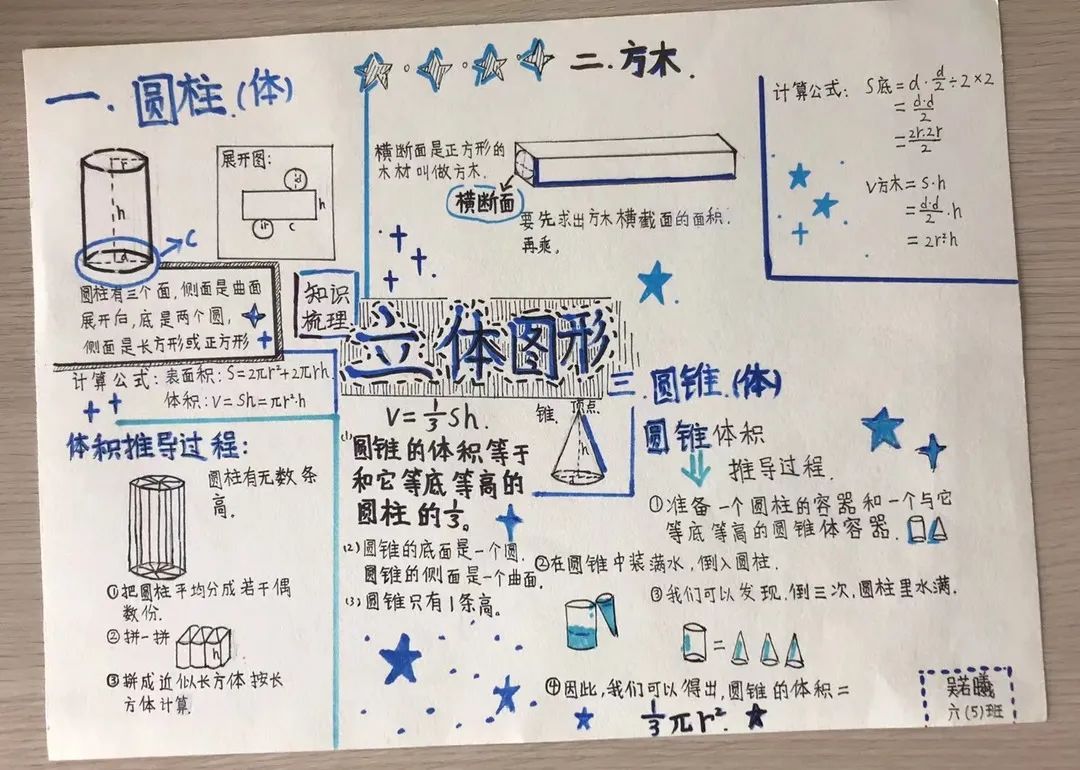 一.圆柱.(体)
r
h
d
C
展开图:
d
h
r
c
圆柱有三个面,侧面是曲面
展开后,底是两个圆,
侧面是长方形或正方形
计算公式:表面积:S=2πr²+2πrh.
体积:V=Sh=πr²·h
体积推导过程:
圆柱有无数条
高.
①把圆柱平均分成若干偶
数份.
②拼一拼
h
③拼成近似长方体按长
方体计算.
二.方木.
横断面是正方形的
木材叫做方木.
横断面
要先求出方木横截面的面积.
再乘。
计算公式: S底=d·d/2÷2×2
=d·d/2
=2r·2r/2
V方木=S·h
=d·d/2·h
=2r²h
知识
梳理
立体图形
V=1/3Sh.
锥.
顶点.
h
(1)圆锥的体积等于
和它等底等高的
圆柱的1/3。
(2)圆锥的底面是一个圆.
圆锥的侧面是一个曲面.
(3)圆锥只有1条高。
三.圆锥.(体)
圆锥体积
推导过程.
①准备一个圆柱的容器和一个与它
等底等高的圆锥体容器.
②在圆锥中装满水,倒入圆柱.
③我们可以发现,倒三次,圆柱里水满.
=
④因此,我们可以得出,圆锥的体积=
1/3πr².
吴若曦
六(5)班